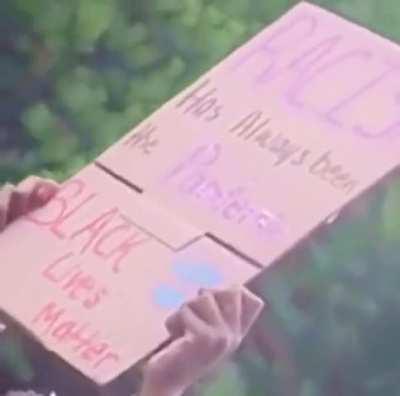 RACIS
Has Always been
the
BLACK
Lives
Matter